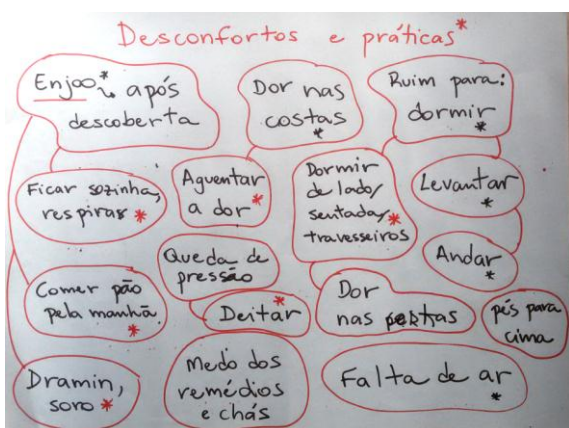 Desconfortos e práticas*
Enjoo* após
descoberta
Dor nas
costas
*
Ruim para:
dormir
*
Ficar sozinha,
respirar *
Aguentar
a dor *
Dormir
de lado/
sentada/ *
travesseiros
Levantar
*
Comer pão
pela manhã
*
Queda de
pressão
Deitar *
Dor
nas
Andar
*
pés para
cima
Dramin,
soro *
Medo dos
remédios
e chás
Falta de ar
*